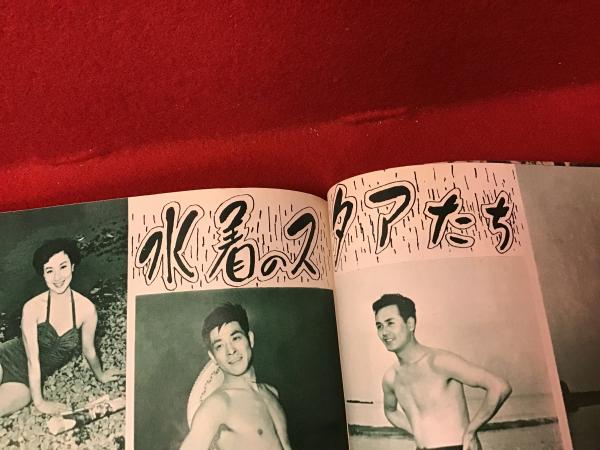 水着のスタアたち